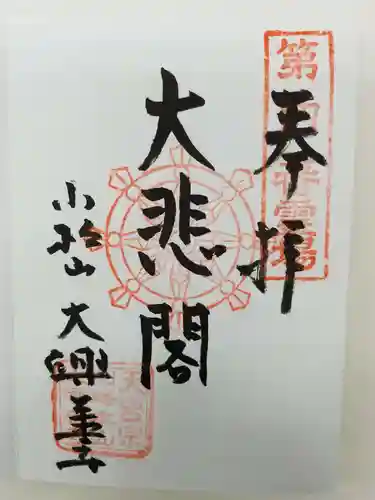 奉拝
第 番霊場
大悲閣
小松山 大興善寺